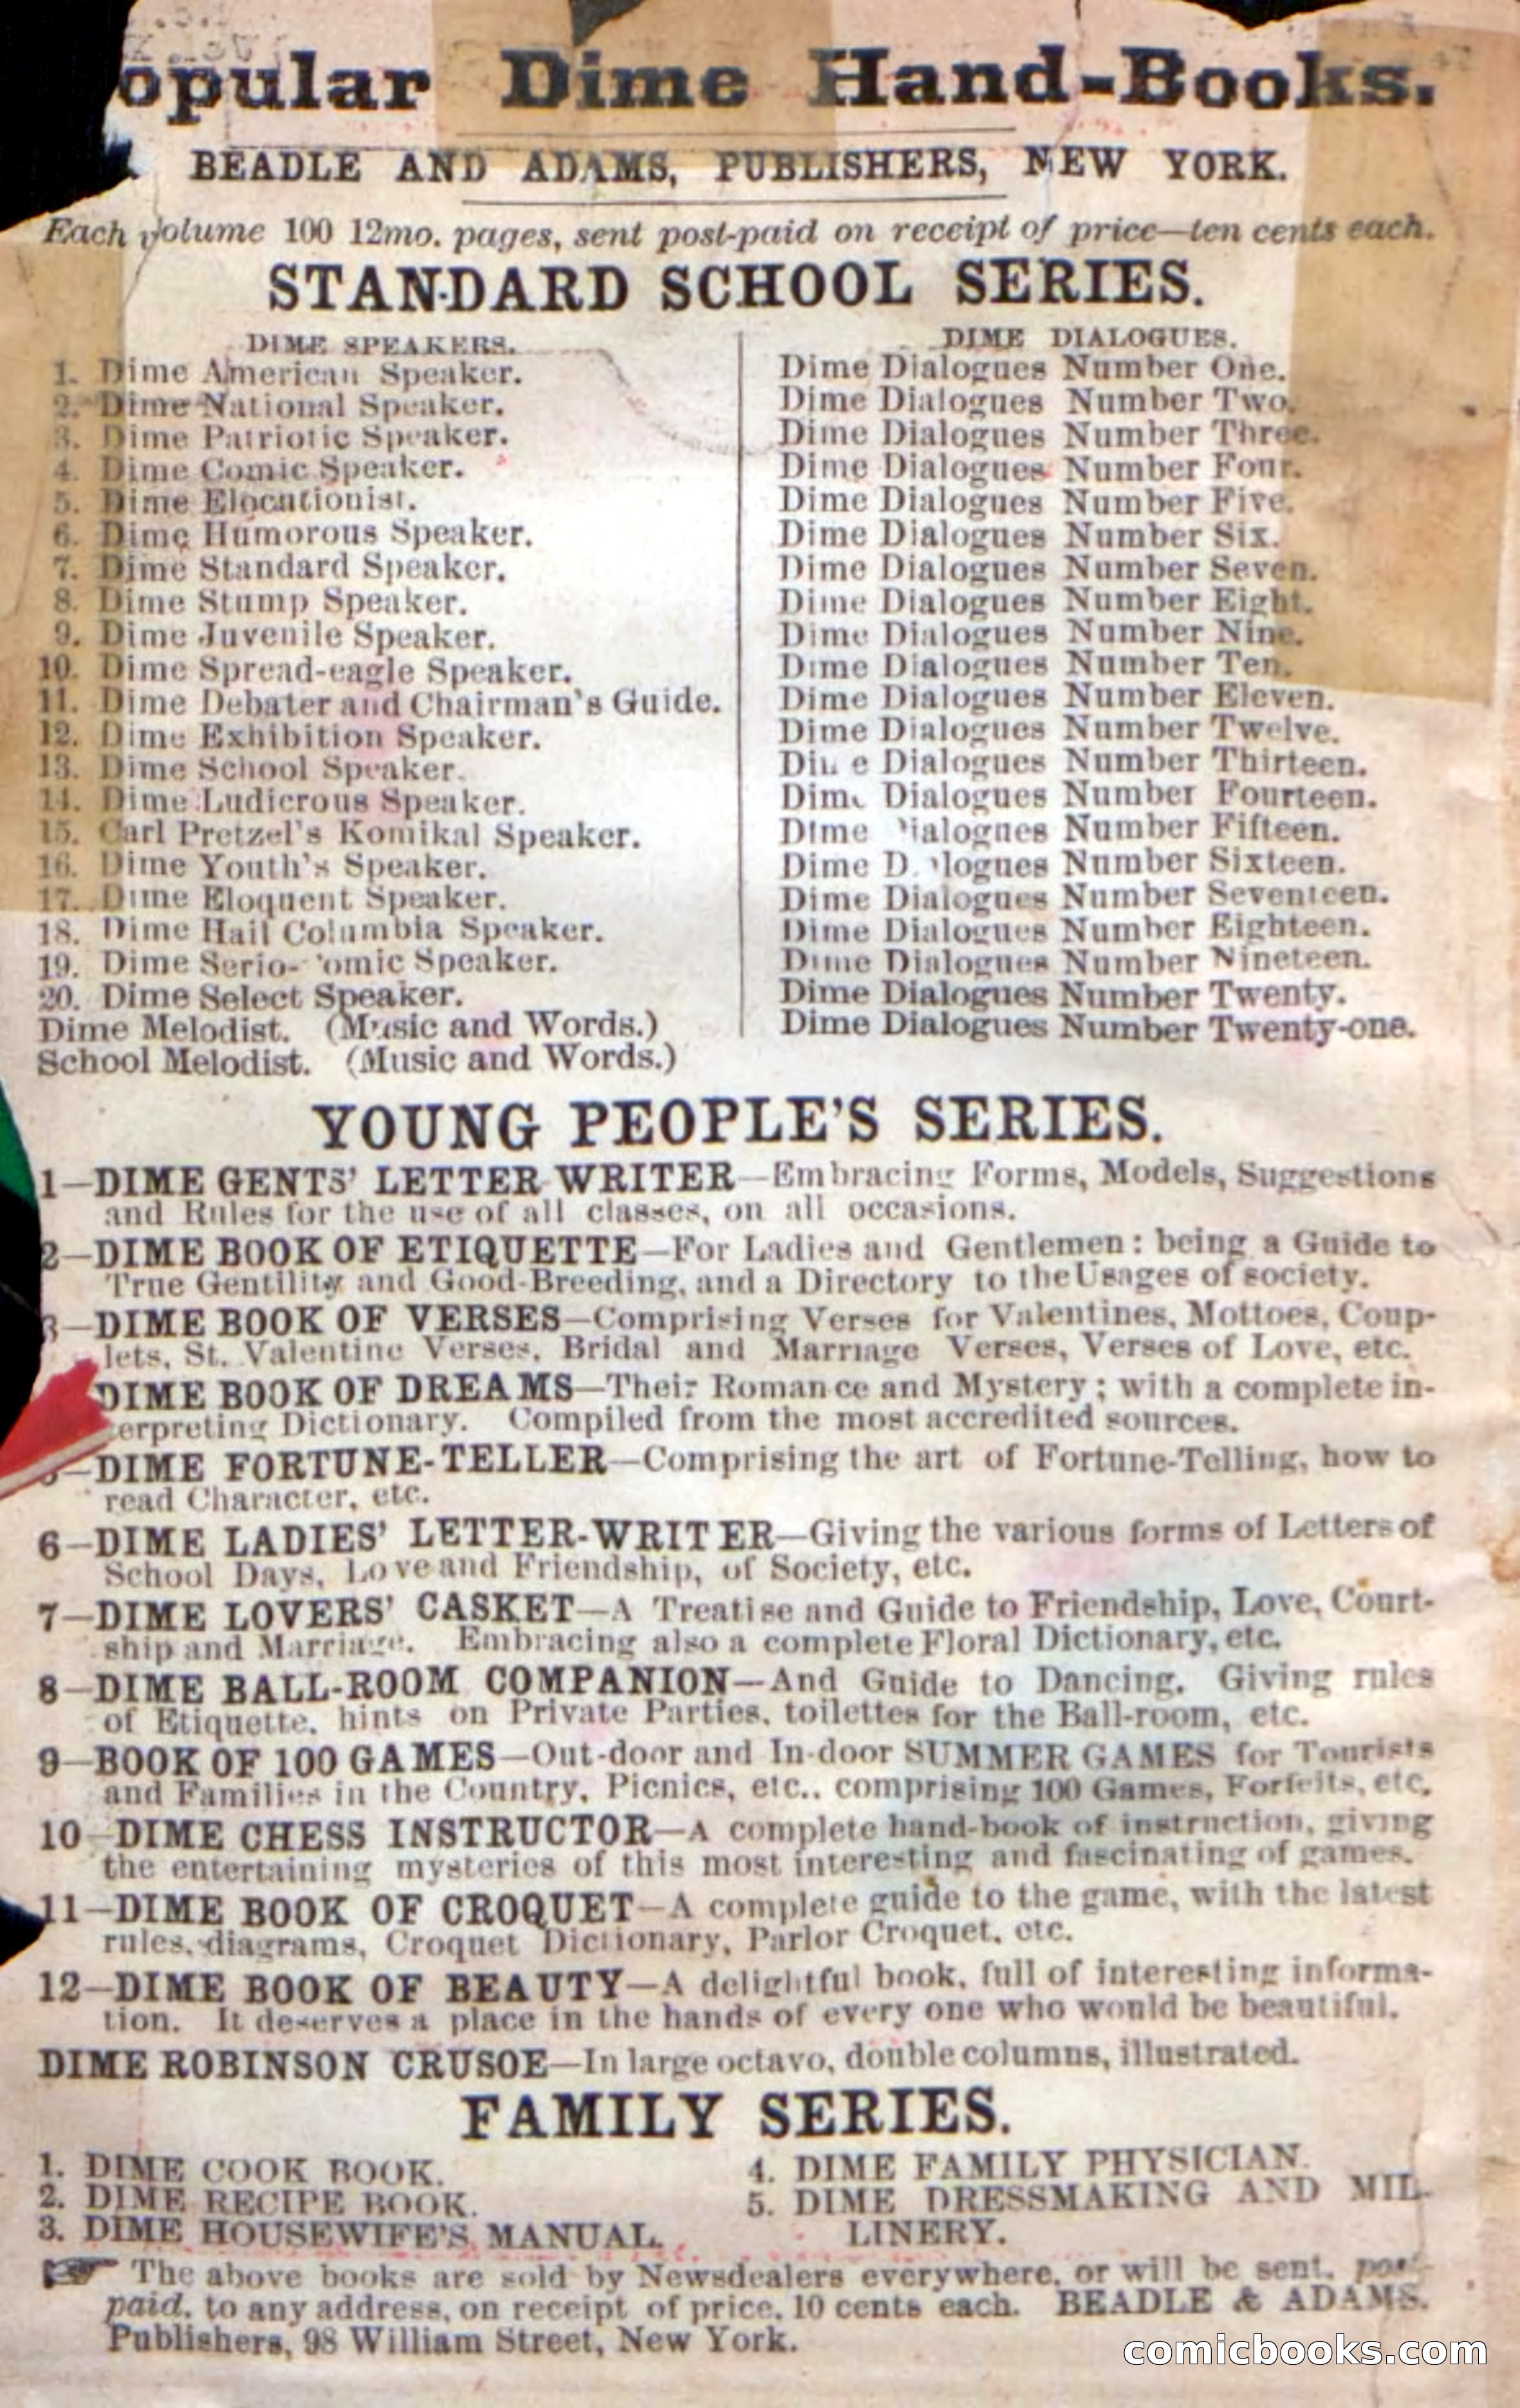 opular Dime Hand-Books.
BEADLE AND ADAMS, PUBLISHERS, NEW YORK.
Each volume 100 12mo. pages, sent post-paid on receipt of price—ten cents each.
STANDARD SCHOOL SERIES.
DIME SPEAKERS.
1. Dime American Speaker.
2. Dime National Speaker.
3. Dime Patriotic Speaker.
4. Dime Comic Speaker.
5. Dime Elocutionist.
6. Dime Humorous Speaker.
7. Dime Standard Speaker.
8. Dime Stump Speaker.
9. Dime Juvenile Speaker.
10. Dime Spread-eagle Speaker.
11. Dime Debater and Chairman's Guide.
12. Dime Exhibition Speaker.
13. Dime School Speaker.
14. Dime Ludicrous Speaker.
15. Carl Pretzel's Komikal Speaker.
16. Dime Youth's Speaker.
17. Dime Eloquent Speaker.
18. Dime Hail Columbia Speaker.
19. Dime Serio- omic Speaker.
20. Dime Select Speaker.
Dime Melodist. (Music and Words.)
School Melodist. (Music and Words.)
DIME DIALOGUES.
Dime Dialogues Number One.
Dime Dialogues Number Two.
Dime Dialogues Number Three.
Dime Dialogues Number Four.
Dime Dialogues Number Five.
Dime Dialogues Number Six.
Dime Dialogues Number Seven.
Dime Dialogues Number Eight.
Dime Dialogues Number Nine.
Dime Dialogues Number Ten.
Dime Dialogues Number Eleven.
Dime Dialogues Number Twelve.
Dime Dialogues Number Thirteen.
Dime Dialogues Number Fourteen.
Dime Dialogues Number Fifteen.
Dime Dialogues Number Sixteen.
Dime Dialogues Number Seventeen.
Dime Dialogues Number Eighteen.
Dime Dialogues Number Nineteen.
Dime Dialogues Number Twenty.
Dime Dialogues Number Twenty-one.
YOUNG PEOPLE'S SERIES.
1—DIME GENTS' LETTER WRITER—Embracing Forms, Models, Suggestions
and Rules for the use of all classes, on all occasions.
2—DIME BOOK OF ETIQUETTE—For Ladies and Gentlemen: being a Guide to
True Gentility and Good-Breeding, and a Directory to the Usages of society.
3—DIME BOOK OF VERSES—Comprising Verses for Valentines, Mottoes, Coup-
lets, St. Valentine Verses, Bridal and Marriage Verses, Verses of Love, etc.
DIME BOOK OF DREAMS—Their Romance and Mystery; with a complete in-
terpreting Dictionary. Compiled from the most accredited sources.
5—DIME FORTUNE-TELLER—Comprising the art of Fortune-Telling, how to
read Character, etc.
6—DIME LADIES' LETTER-WRITER—Giving the various forms of Letters of
School Days, Love and Friendship, of Society, etc.
7—DIME LOVERS' CASKET—A Treatise and Guide to Friendship, Love, Court-
ship and Marriage. Embracing also a complete Floral Dictionary, etc.
8—DIME BALL-ROOM COMPANION—And Guide to Dancing. Giving rules
of Etiquette, hints on Private Parties, toilettes for the Ball-room, etc.
9—BOOK OF 100 GAMES—Out-door and In-door SUMMER GAMES for Tourists
and Families in the Country, Picnics, etc., comprising 100 Games, Forfeits, etc.
10—DIME CHESS INSTRUCTOR—A complete hand-book of instruction, giving
the entertaining mysteries of this most interesting and fascinating of games.
11—DIME BOOK OF CROQUET—A complete guide to the game, with the latest
rules, diagrams, Croquet Dictionary, Parlor Croquet, etc.
12—DIME BOOK OF BEAUTY—A delightful book, full of interesting informa-
tion. It deserves a place in the hands of every one who would be beautiful.
DIME ROBINSON CRUSOE—In large octavo, double columns, illustrated.
FAMILY SERIES.
1. DIME COOK BOOK.
2. DIME RECIPE BOOK.
3. DIME HOUSEWIFE'S MANUAL.
4. DIME FAMILY PHYSICIAN.
5. DIME DRESSMAKING AND MIL-
LINERY.
☞ The above books are sold by Newsdealers everywhere, or will be sent, post-
paid, to any address, on receipt of price, 10 cents each. BEADLE & ADAMS.
Publishers, 98 William Street, New York.
comicbooks.com